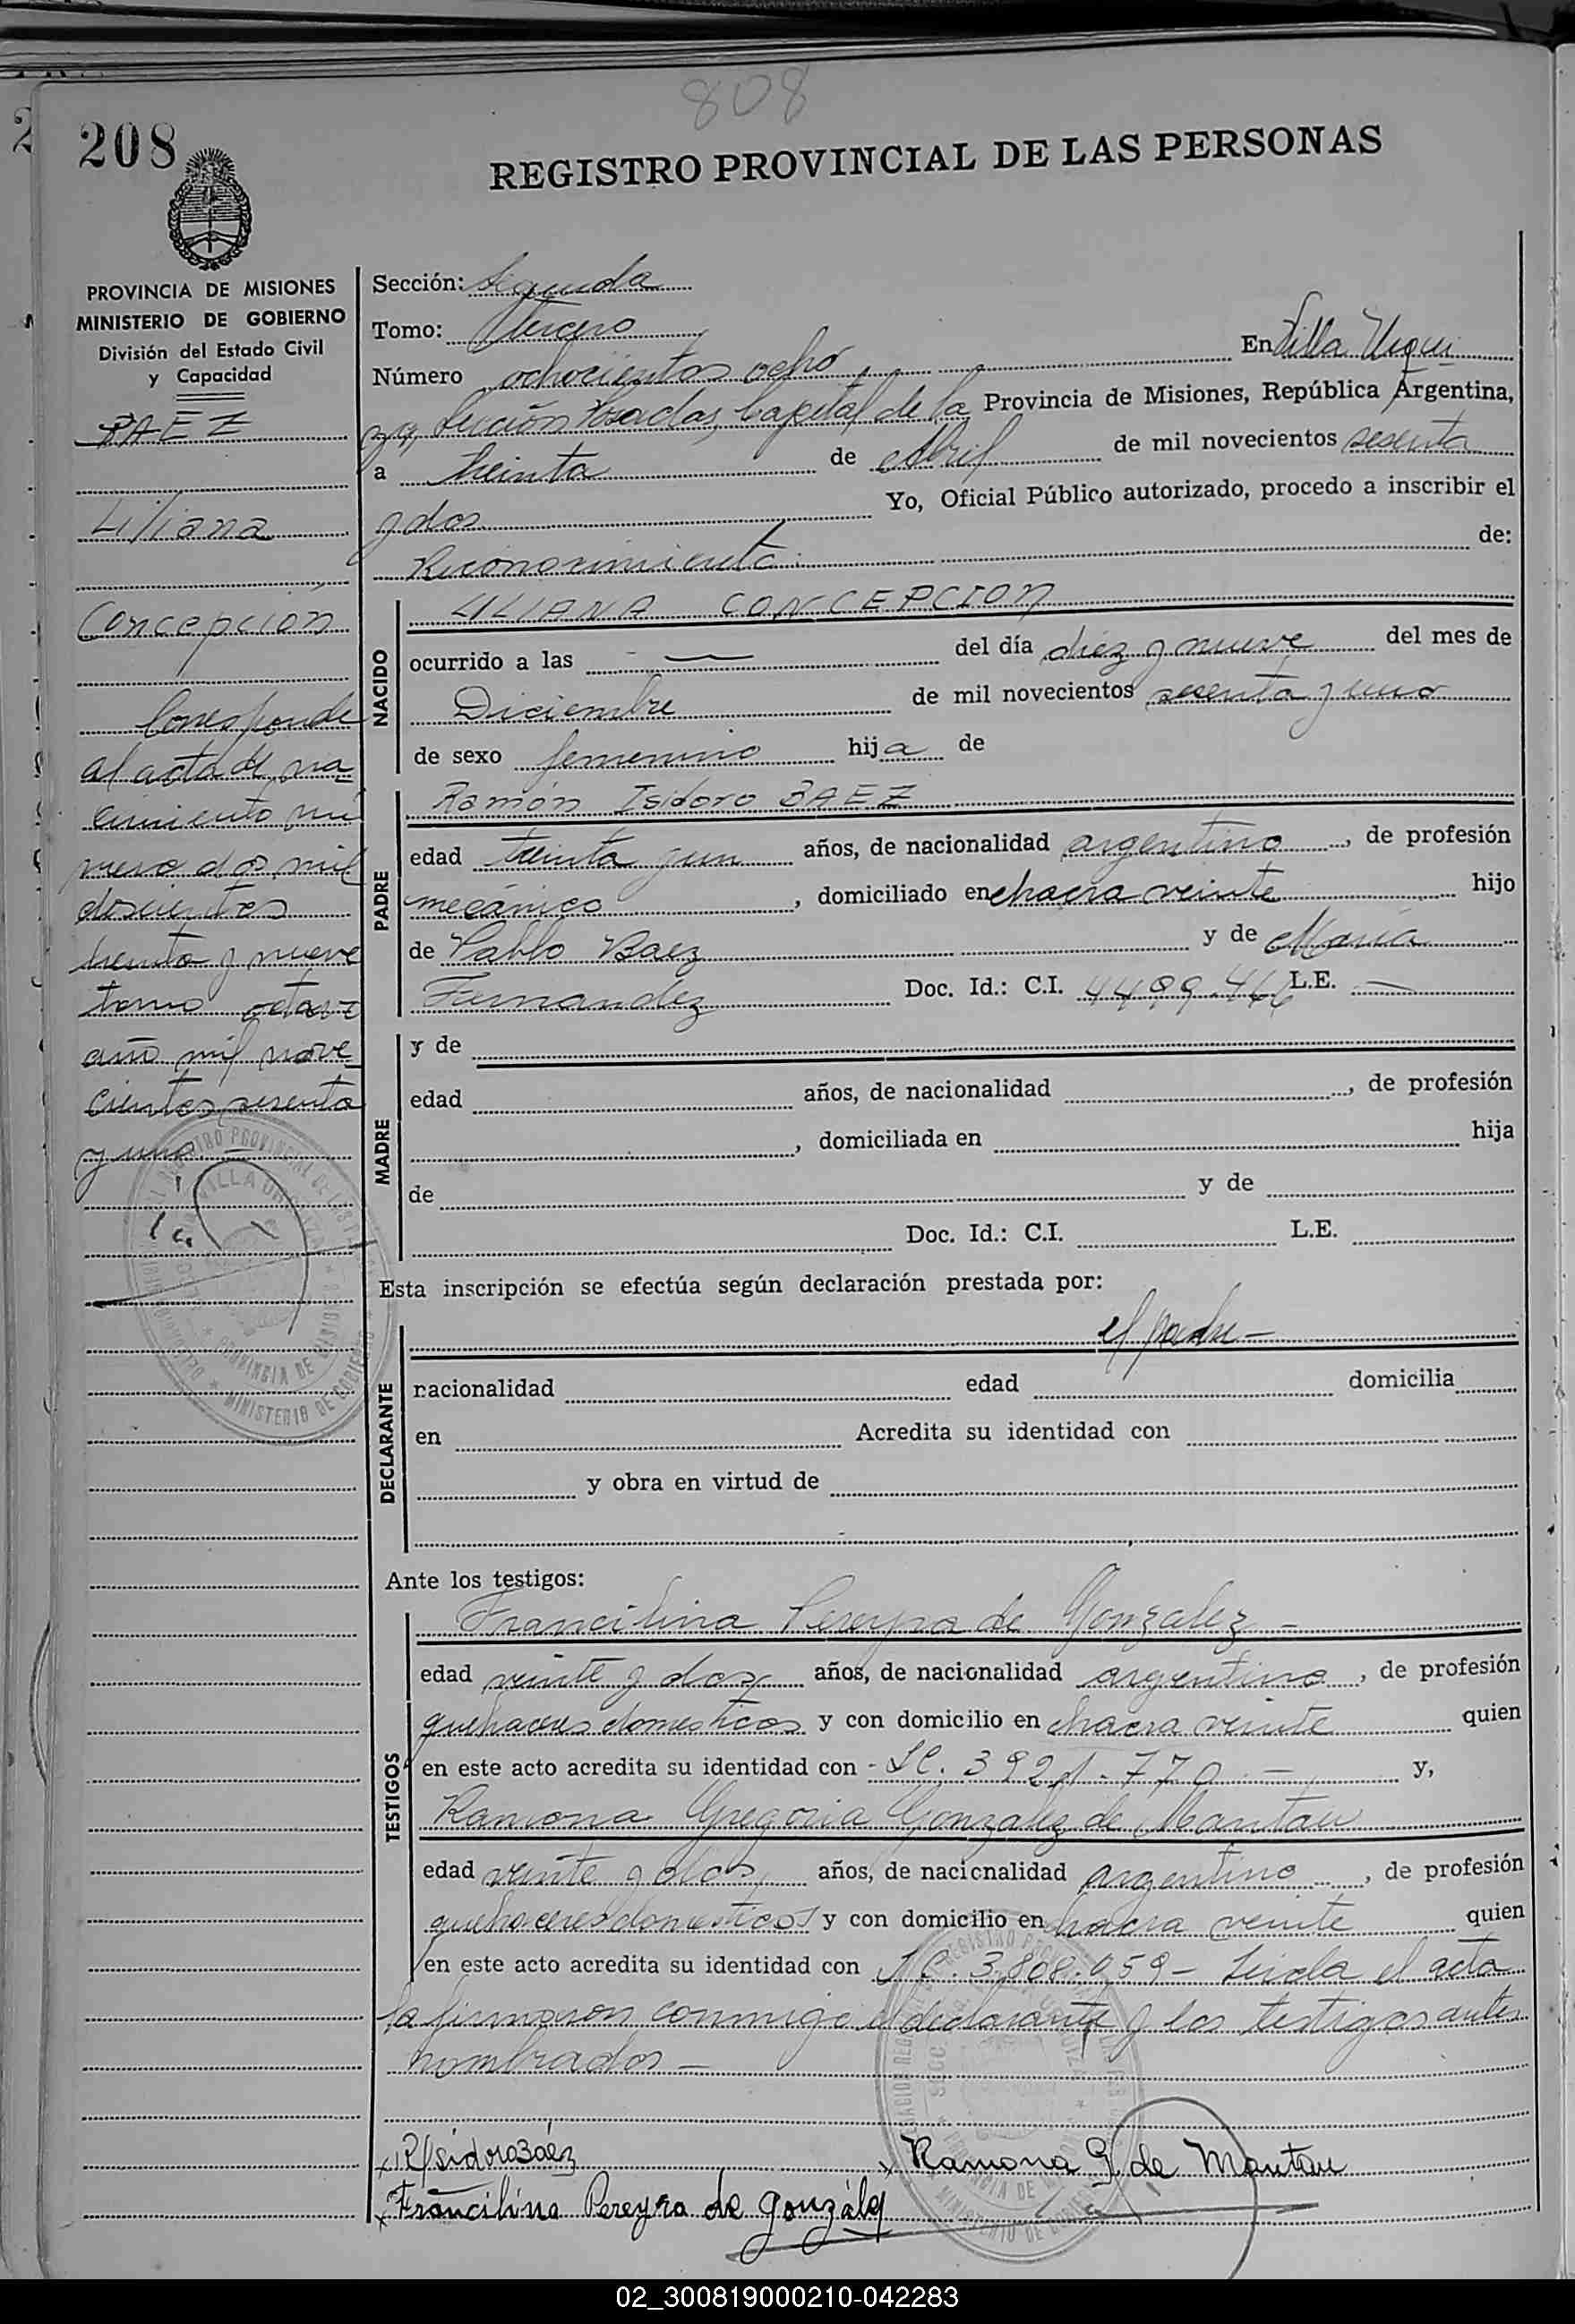 808
208
REGISTRO PROVINCIAL DE LAS PERSONAS
PROVINCIA DE MISIONES
MINISTERIO DE GOBIERNO
División del Estado Civil
y Capacidad
BAEZ
Liliana
Concepción
Corresponde
al acta de na
cimiento nú
mero dos mil
doscientos
treinta y nueve
tomo octavo
año mil nove
cientos sesenta
y uno
Sección: Segunda
Tomo: Tercero
Número ochocientos ocho En Villa Urqui
za, Sección Posadas, Capital de la Provincia de Misiones, República Argentina,
a treinta de Abril de mil novecientos sesenta
y dos Yo, Oficial Público autorizado, procedo a inscribir el
Reconocimiento de:
NACIDO
LILIANA CONCEPCION
ocurrido a las — del día diez y nueve del mes de
Diciembre de mil novecientos sesenta y uno
de sexo femenino hija de
PADRE
Ramón Isidoro BAEZ
edad treinta y un años, de nacionalidad argentino, de profesión
mecánico, domiciliado en chacra veinte hijo
de Pablo Baez y de María
Fernandez Doc. Id.: C.I. L.E. —
MADRE
y de
edad años, de nacionalidad , de profesión
, domiciliada en hija
de y de
Doc. Id.: C.I. L.E.
Esta inscripción se efectúa según declaración prestada por:
el padre —
DECLARANTE
nacionalidad edad domicilia
en Acredita su identidad con
y obra en virtud de
Ante los testigos:
TESTIGOS
Francilina Pereyra de Gonzalez —
edad veinte y dos años, de nacionalidad argentina, de profesión
quehaceres domesticos y con domicilio en chacra veinte quien
en este acto acredita su identidad con - LC. 3921.770 — y,
Ramona Gregoria Gonzalez de Mantau
edad veinte y dos años, de nacionalidad argentina, de profesión
quehaceres domesticos y con domicilio en chacra veinte quien
en este acto acredita su identidad con LC. 3.808.959 — Leida el acta
la firmaron conmigo el declarante y los testigos antes
nombrados —
R Isidoro Báez
Ramona G. de Mantau
Francilina Pereyra de Gonzálz
02_300819000210-042283